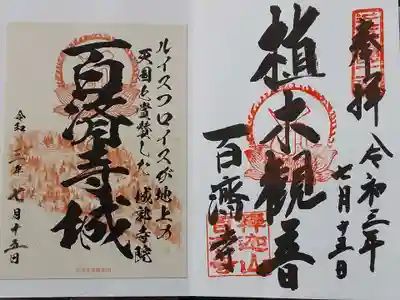 奉拝
令和三年
七月十五日
植木観音
百濟寺
ルイスフロイスが地上の
天国と賞賛した城郭寺院
百済寺城
令和三年七月十五日